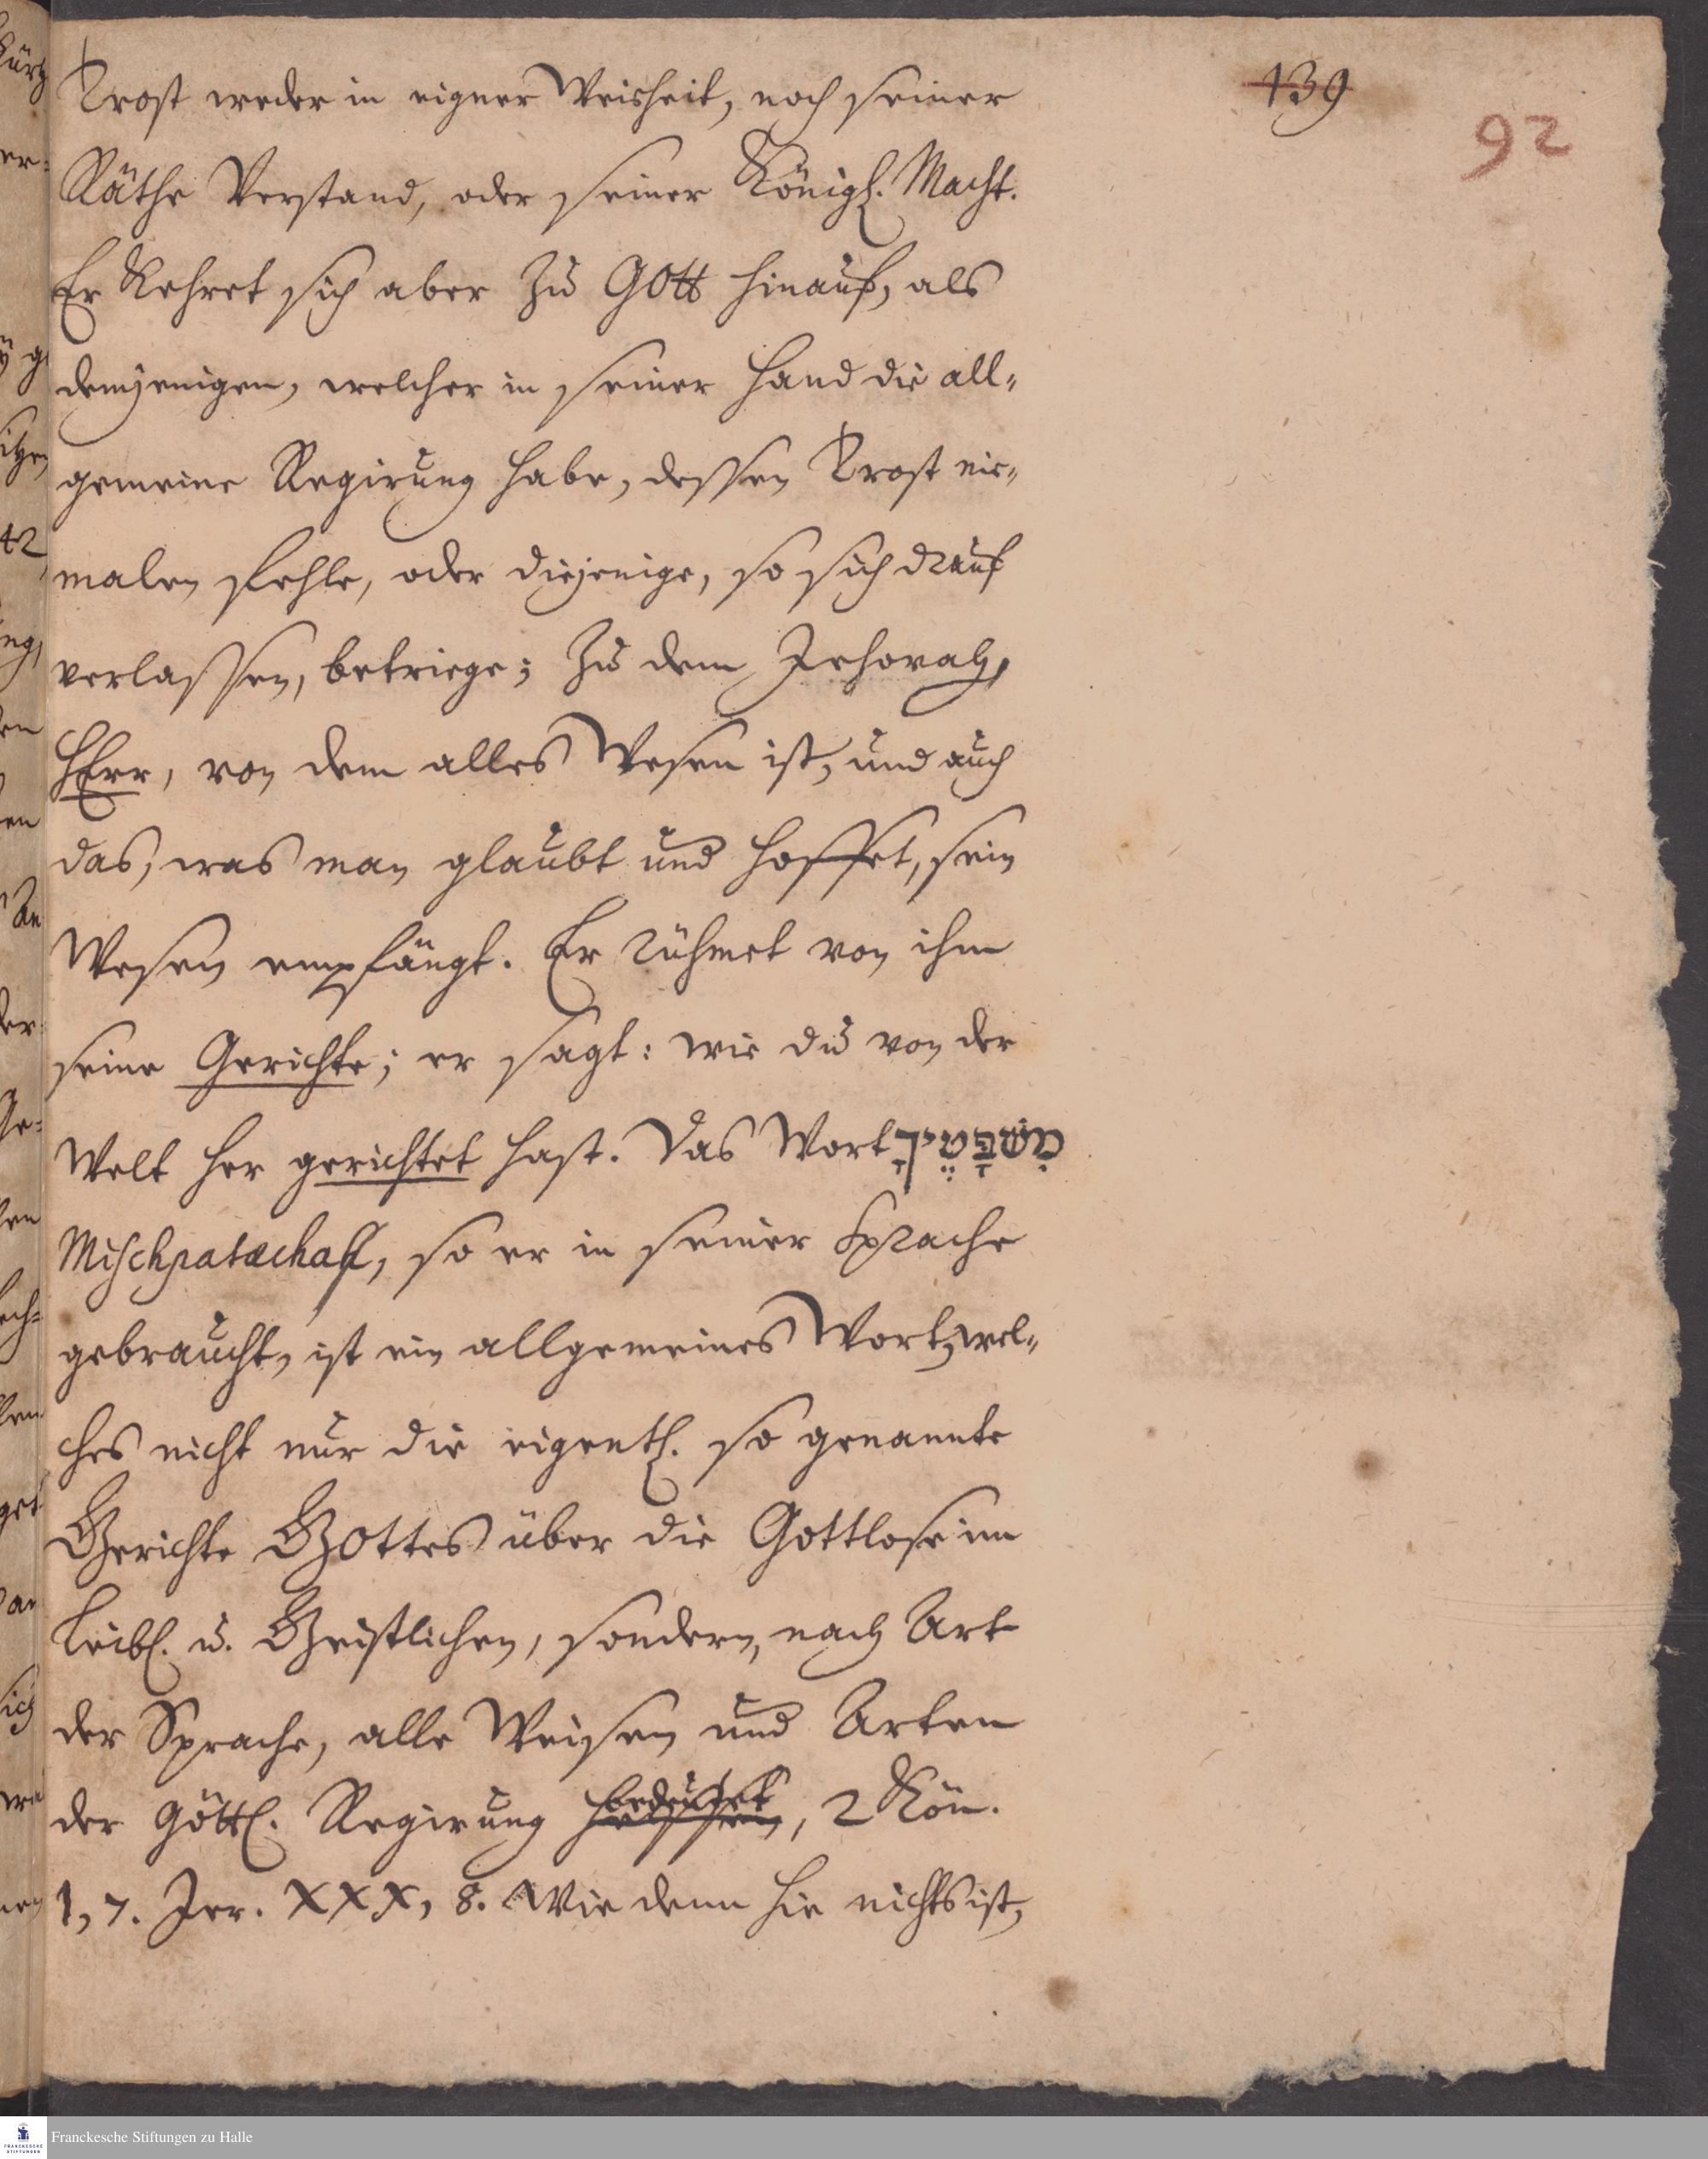 139
92
Trost weder in eigner Weisheit, noch seiner
Räthe Verstand, oder seiner Königl. Macht.
Er Kehret sich aber zu GOtt hinauf, als
demjenigen, welcher in seiner Hand die all-
gemeine Regirung habe, dessen Trost nie-
malen fehle, oder diejenige, so sich drauf
verlassen, betriege; zu dem Jehovah,
HErr, von dem alles Wesen ist, und auch
das, was man glaubt und hoffet, sein
Wesen empfängt. Er rühmet von ihm
seine Gerichte; er sagt: wie du von der
Welt her gerichtet hast. Das Wort מִשְׁפָּטֶיךָ
Mischpatæchah, so er in seiner Sprache
gebraucht, ist ein allgemeines Wort, wel-
ches nicht nur die eigentl. so genannte
Gerichte GOttes über die Gottlose im
Leibl. u. Geistlichen, sondern, nach Art
der Sprache, alle Weisen und Arten
der Göttl. Regirung bedeutet, 2 Kön.
1, 7. Jer. XXX, 8. Wie denn hie nichts ist,
Franckesche Stiftungen zu Halle